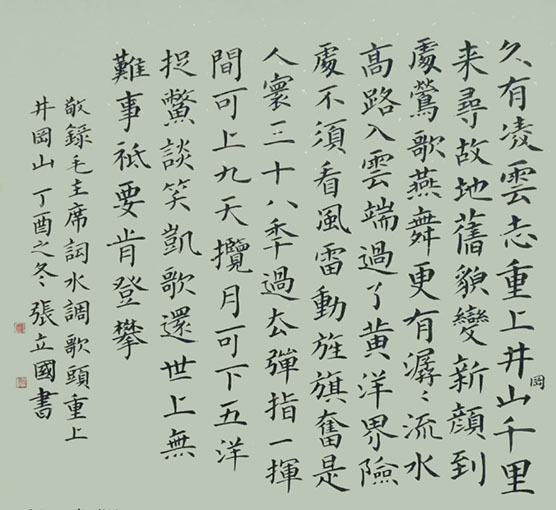 久有凌雲志重上井山千里
岡
来尋故地舊貌變新顔到
處鶯歌燕舞更有潺〻流水
高路入雲端過了黄洋界險
處不須看風雷動旌旗奮是
人寰三十八秊過去彈指一揮
間可上九天攬月可下五洋
捉鱉談笑凱歌還世上無
難事祗要肯登攀
敬録毛主席詞水調歌頭重上
井岡山丁酉之冬張立國書